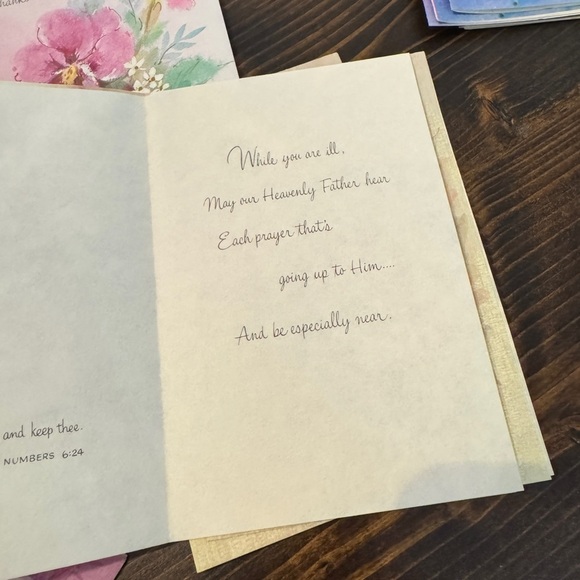 and keep thee.
NUMBERS 6:24
While you are ill,
May our Heavenly Father hear
Each prayer that's
going up to Him....
And be especially near.